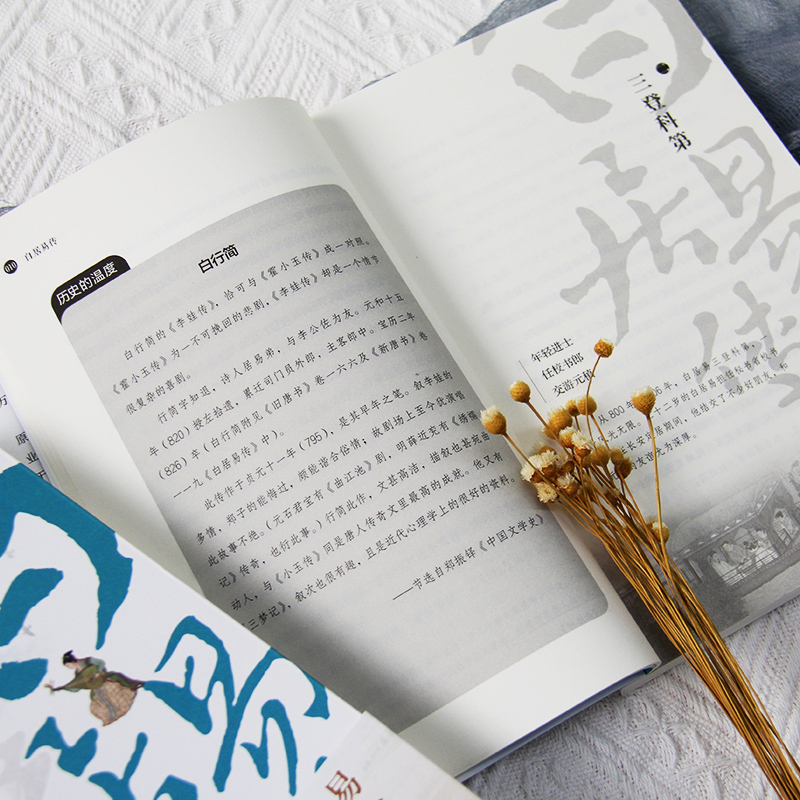 010 白居易传
历史的温度
白行简
白行简的《李娃传》，恰可与《霍小玉传》成一对照。
《霍小玉传》为一不可挽回的悲剧，《李娃传》却是一个情节
很复杂的喜剧。
行简字知退，诗人居易弟，与李公佐为友。元和十五
年（820）授左拾遗，累迁司门员外郎，主客郎中。宝历二年
（826）年（白行简附见《旧唐书》卷一六六及《新唐书》卷
一一九《白居易传》中）。
此传作于贞元十一年（795），是其早年之笔。叙李娃的
多情，郑子的能悔过，殷能谐合俗情；故剧场上至今犹演唱
此故事不绝。（元石君宝有《曲江池》剧，明薛近兖有《绣襦
记》传奇，也衍此事。）行简此作，文甚高洁，描叙也甚宛曲
动人，与《小玉传》同是唐人传奇文里最高的成就。他又有
《三梦记》，叙次也很有趣，且是近代心理学上的很好的资料。
——节选自郑振铎《中国文学史》
三登科第
白居易传
年轻进士
任校书郎
交游元稹
从 800
年，白居易三登科第，
光无限。
十二岁的白居易担任秘书省校书
长安定居期间，他结交了不少好朋友，
友谊尤为深厚。
原
业
白居易
易